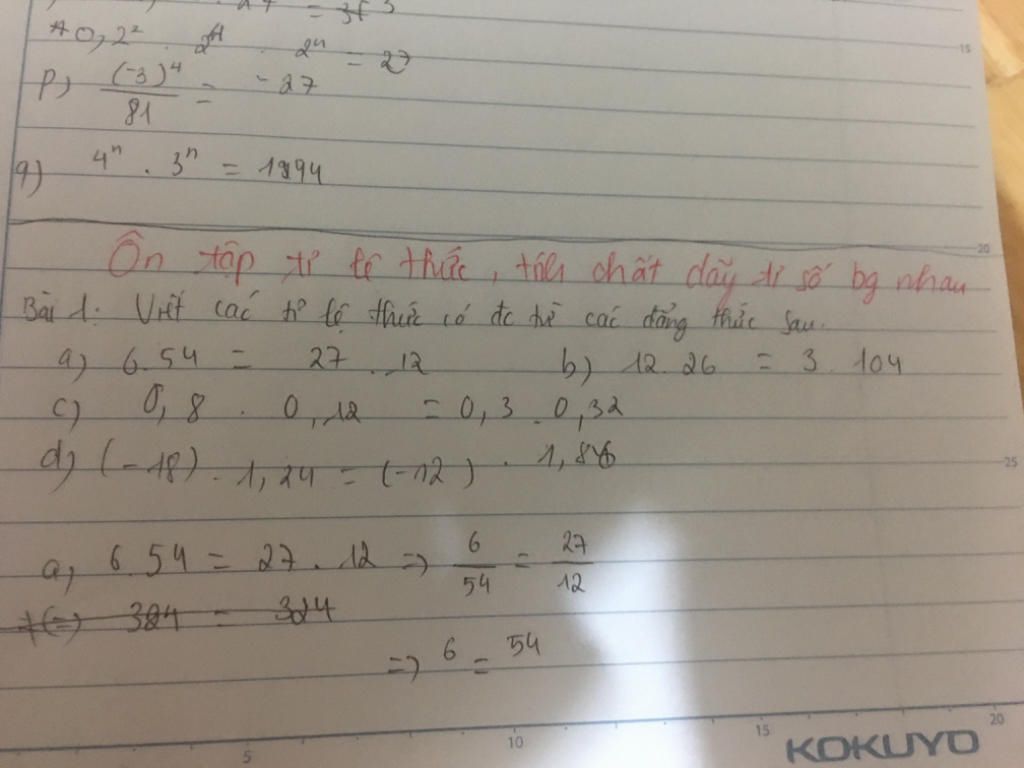 = 3
o, 2² . 2⁴ . 2ⁿ = 27
p) (-3)⁴ / 81 = -27
q) 4ⁿ . 3ⁿ = 1994
Ôn tập tỉ lệ thức, tính chất dãy tỉ số bg nhau
Bài 1: Viết các tỉ lệ thức có đc từ các đẳng thức sau.
a) 6.54 = 27 . 12 b) 12.26 = 3.104
c) 0,8 . 0,12 = 0,3 . 0,32
d) (-18) . 1,24 = (-12) . 1,86
a, 6.54 = 27 . 12 => 6/54 = 27/12
324 = 324
=> 6 = 54
15
20
25
5 10 15 20
KOKUYO